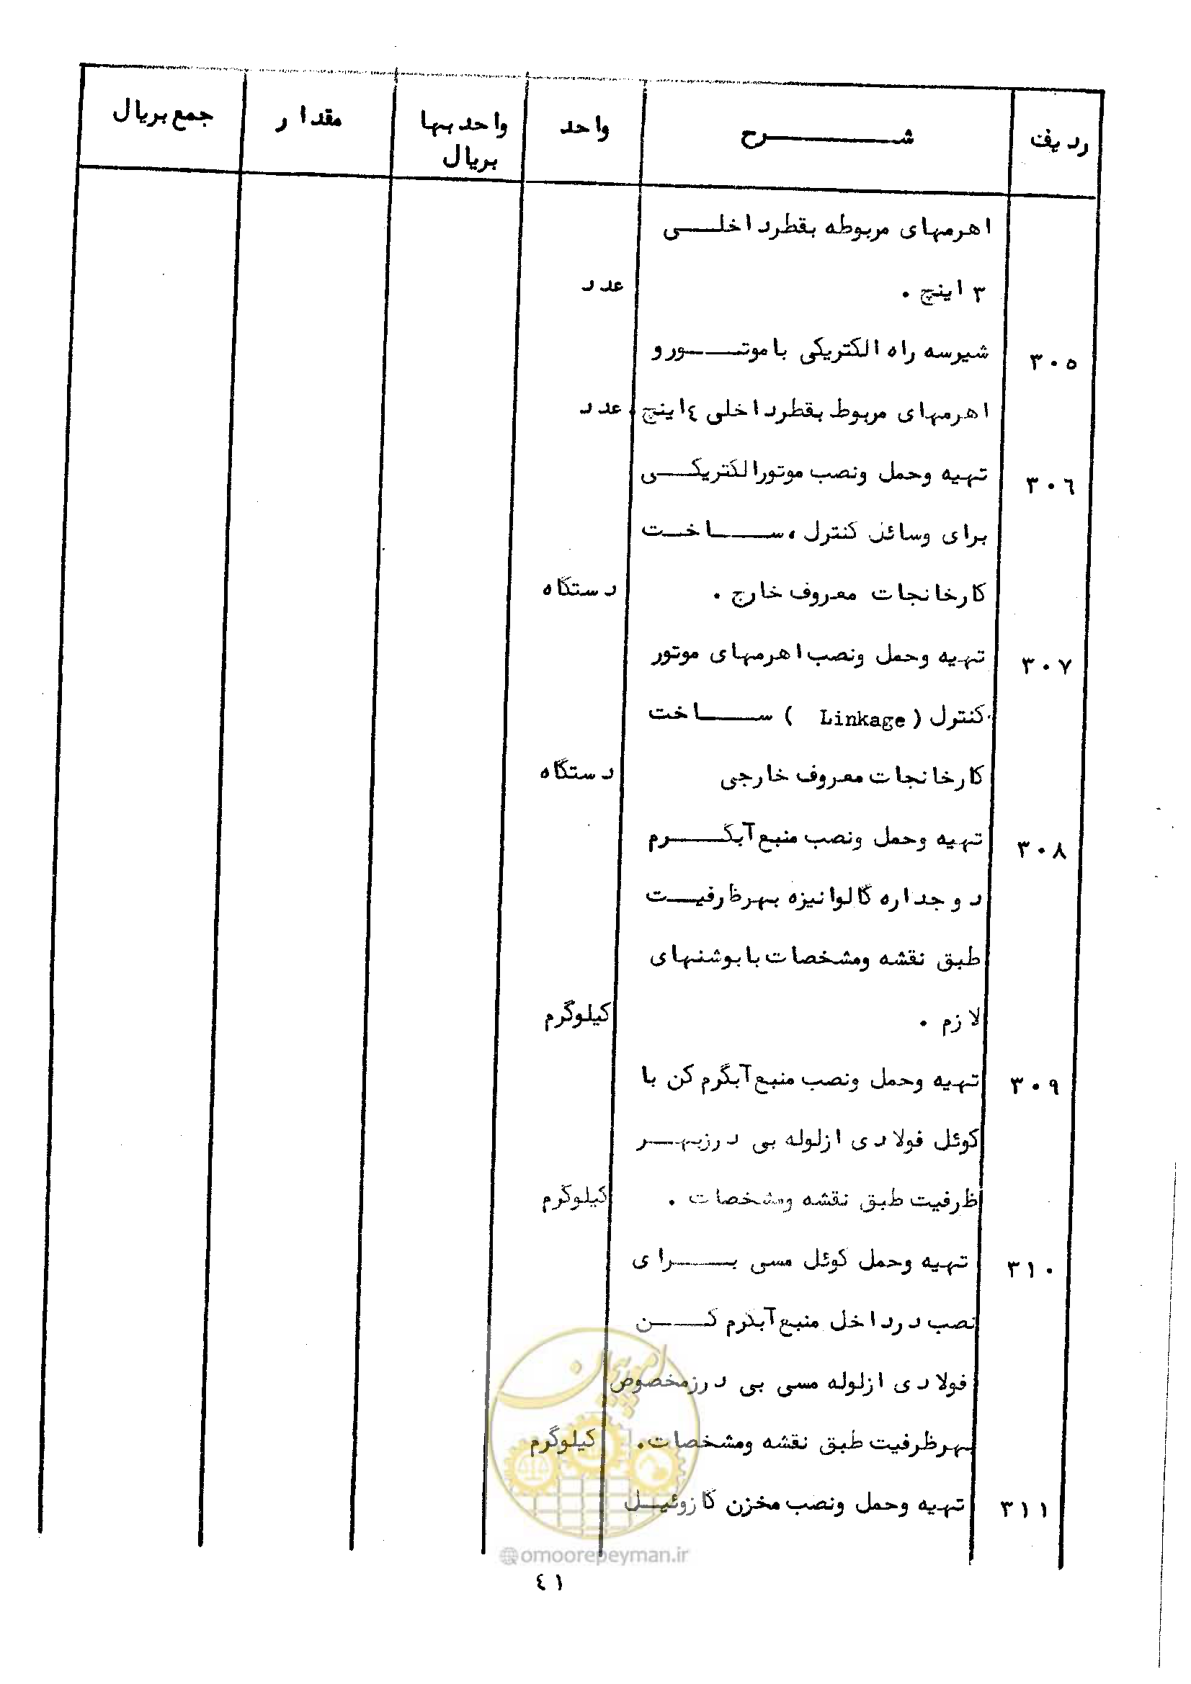 ردیف شرح واحد واحد بها بریال مقدار جمع بریال
اهرمهای مربوطه بقطر داخلی
۳ اینچ . عدد
۳۰۵ شیر سه راه الکتریکی با موتور و
اهرمهای مربوط بقطر داخلی ٤ اینچ . عدد
۳۰٦ تهیه وحمل ونصب موتور الکتریکی
برای وسائل کنترل ، ساخت
کارخانجات معروف خارج . دستگاه
۳۰۷ تهیه وحمل ونصب اهرمهای موتور
کنترل ( Linkage ) ساخت
کارخانجات معروف خارجی دستگاه
۳۰۸ تهیه وحمل ونصب منبع آبگرم
دو جداره گالوانیزه بهر ظرفیت
طبق نقشه ومشخصات با بوشنهای
لازم . کیلوگرم
۳۰۹ تهیه وحمل ونصب منبع آبگرم کن با
کوئل فولادی از لوله بی درز بهر
ظرفیت طبق نقشه ومشخصات . کیلوگرم
۳۱۰ تهیه وحمل کوئل مسی برای
نصب در داخل منبع آبگرم کن
فولادی از لوله مسی بی درز مخصوص
بهر ظرفیت طبق نقشه ومشخصات . کیلوگرم
۳۱۱ تهیه وحمل ونصب مخزن گازوئیل
امور پیمان
@omoorepeyman.ir
٤۱